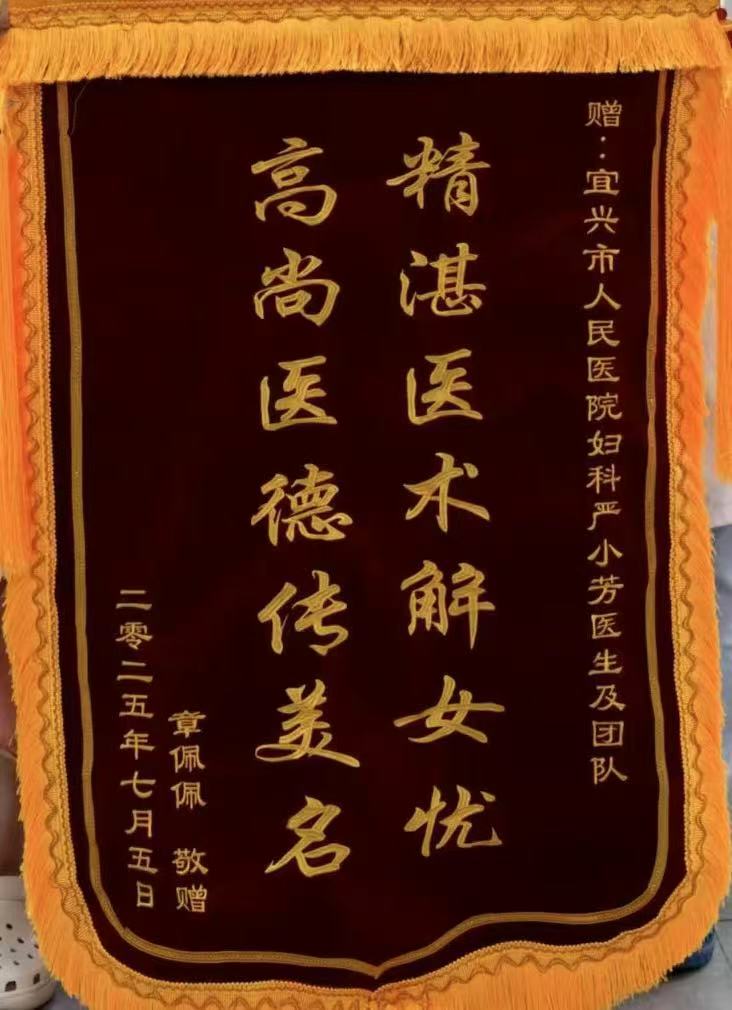 赠:宜兴市人民医院妇科严小芳医生及团队
精湛医术解女忧
高尚医德传美名
章佩佩 敬赠
二零二五年七月五日